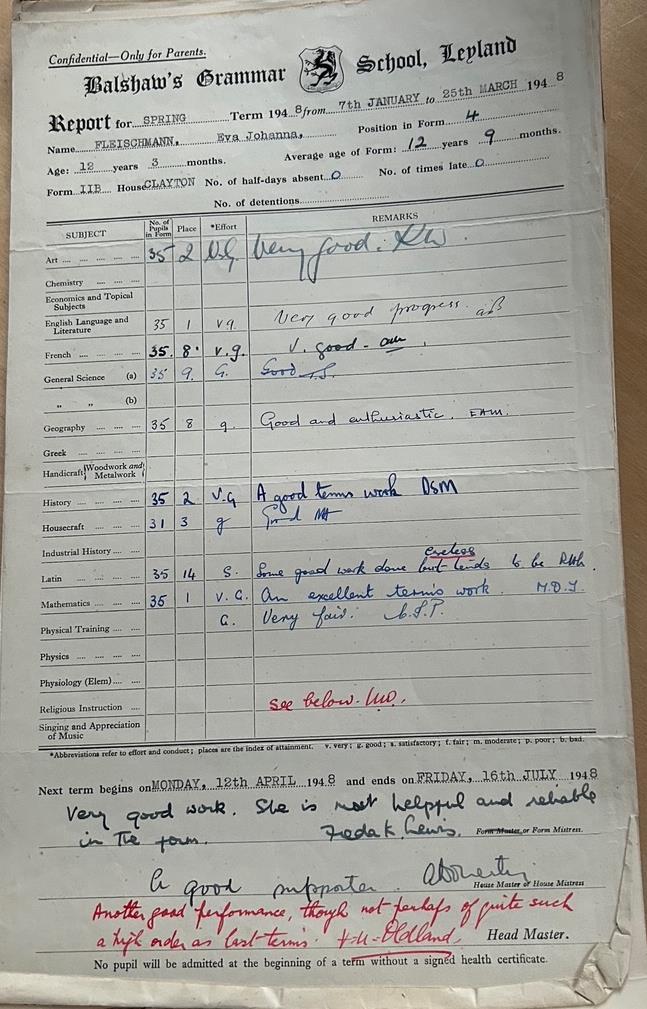 Confidential—Only for Parents.
Balshaw's Grammar School, Leyland
Report for SPRING Term 1948 from 7th JANUARY to 25th MARCH 1948
Name FLEISCHMANN, Eva Johanna, Position in Form 4
Age: 12 years 3 months. Average age of Form: 12 years 9 months.
Form IIB House CLAYTON No. of half-days absent 0 No. of times late 0
No. of detentions
SUBJECT No. of Pupils in Form Place *Effort REMARKS
Art 35 2 V.G. Very good. KW.
Chemistry
Economics and Topical Subjects
English Language and Literature 35 1 vg. Very good progress.
French 35. 8. v.g. V. good -
General Science (a) 35 9. G. Good
„ „ (b)
Geography 35 8 g. Good and enthusiastic. EAM.
Greek
Handicraft {Woodwork and Metalwork
History 35 2 V.G A good terms work DSM
Housecraft 31 3 g Good
Industrial History
Latin 35 14 S. Some good work done but tends to be careless
Mathematics 35 1 V.G. An excellent terms work. M.D.J.
Physical Training G. Very fair.
Physics
Physiology (Elem)
Religious Instruction See below.
Singing and Appreciation of Music
*Abbreviations refer to effort and conduct; places are the index of attainment. v. very; g. good; s. satisfactory; f. fair; m. moderate; p. poor; b. bad.
Next term begins on MONDAY, 12th APRIL 1948 and ends on FRIDAY, 16th JULY 1948
Very good work. She is most helpful and reliable
in the form. Freda K. Lewis. Form Master or Form Mistress.
A good supporter. House Master or House Mistress
Another good performance, though not perhaps of quite such
a high order as last term's. Oldland. Head Master.
No pupil will be admitted at the beginning of a term without a signed health certificate.